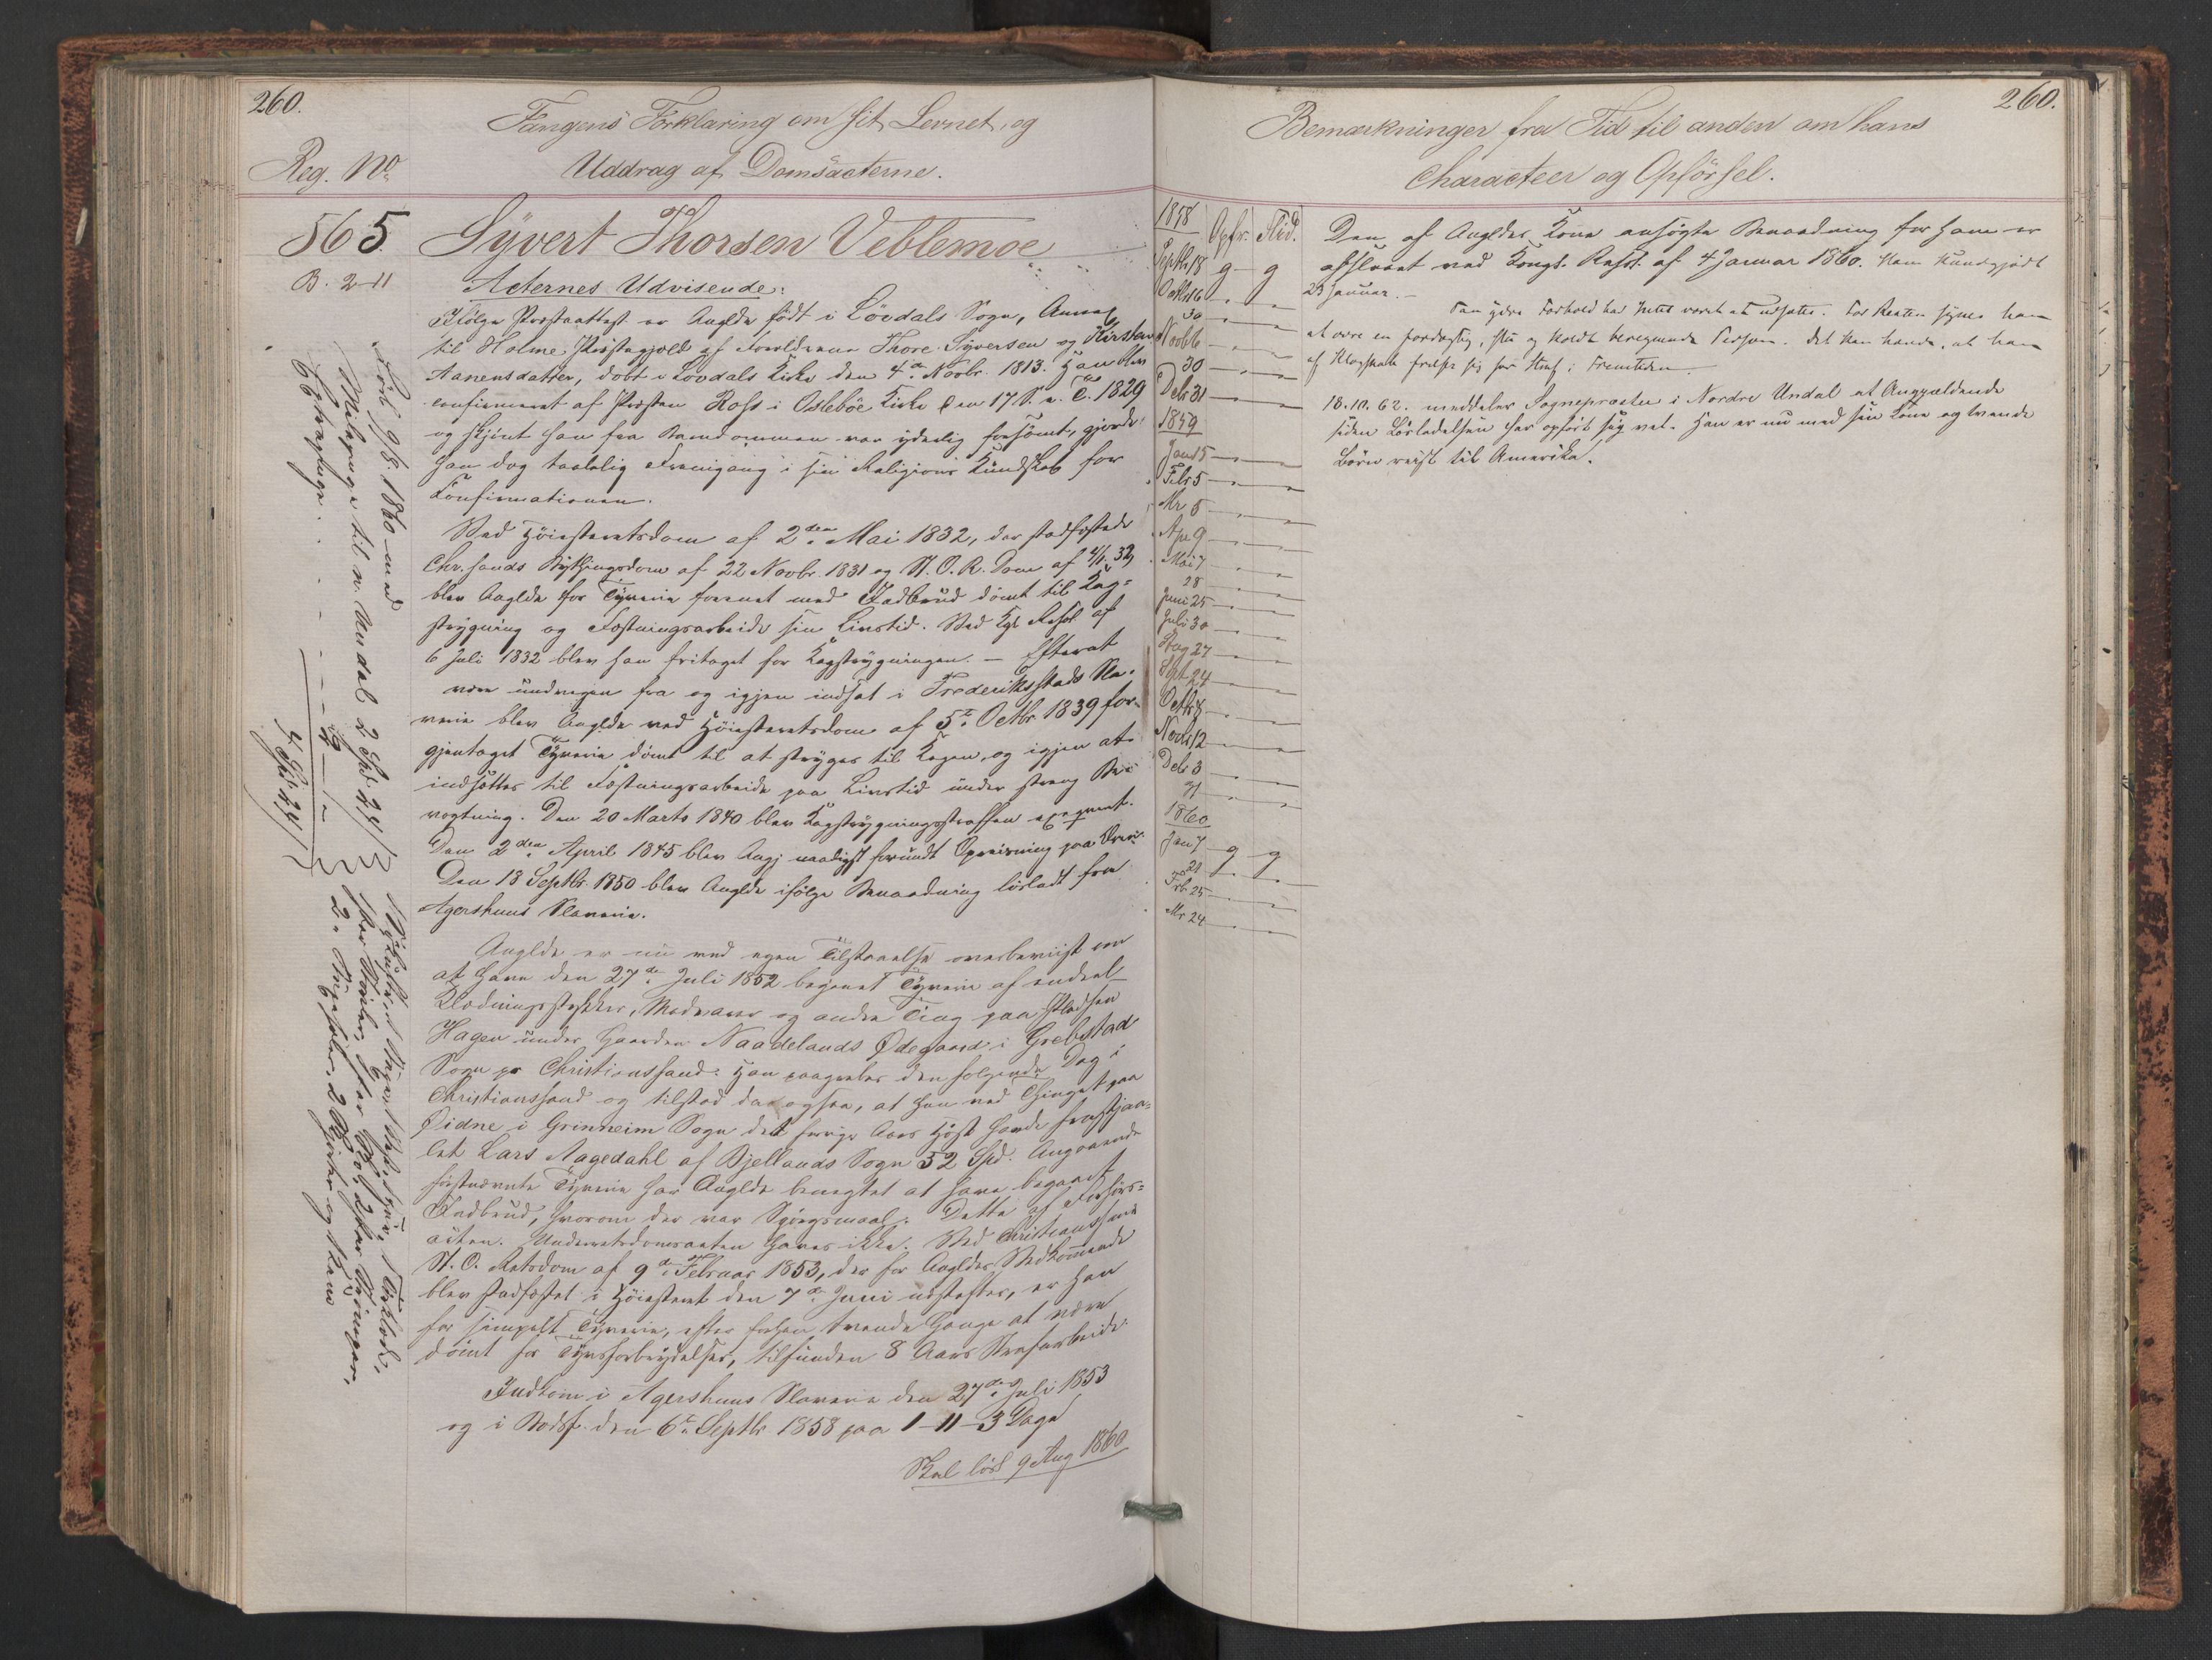 260.
Fangens Forklaring om sit Levnet, og
Reg. No
Uddrag af Domsacterne.
565.
Syvert Thorsen Veblemoe
B. 2-11
Acternes Udvisende:
Ifölge Præsteattest er Anglde födt i Lövdals Sogn, Annex
til Holme Præstegjeld af Forældrene Thore Syversen og Kirsten
Aanensdatter, döbt i Lövdals Kirke den 4de Novbr. 1813. Han blev
confirmeret af Præsten Ross i Osleböe Kirke den 17 S. e. T. 1829
og skjönt han fra Barndommen var yderlig forsömt, gjorde
han dog taalelig Fremgang i sin Religions Kundskab för
Confirmationen.
Ved Höiesteretsdom af 2den Mai 1832, der stadfæstede
Chr.sands Bythingsdom af 22 Novbr. 1831 og St. O. R. Dom af 32
blev Anglde for Tyverie forenet med Indbrud dömt til Kag-
strygning og Fæstningsarbeide sin Livstid. Ved Kgl Resol. af
6 Juli 1832 blev han fritaget for Kagstrygningen. – Efterat
være undvegen fra og igjen indsat i Frederiksstads Sla-
verie blev Anglde ved Höiesteretsdom af 5te Octbr 1839 for
gjentaget Tyverie dömt til at stryges til Kagen, og igjen at
indsættes til Fæstningsarbeide paa Livstid under streng Be-
vogtning. Den 20 Marts 1840 blev Kagstrygningsstraffen exeqveret.
Den 2den April 1845 blev Angj naadigst forundt Opreisning paa
Den 13 Septbr. 1850 blev Anglde ifölge Benaadning lösladt fra
Agershuus Slaverie.
Anglde er nu ved egen Tilstaaelse overbeviist om
at have den 27de Juli 1852 begaaet Tyverie af endeel
Klædningsstykker, Madvarer og andre Ting paa Pladsen
Hagen under Gaarden Naadelands Ödegaard i Grebstad
Sogn pr Christianssand. Han paagrebes den fölgende Dag i
Christianssand og tilstod da ogsaa, at han ved Thinget paa
Öidne i Grinneim Sogn det forrige Aars Höst havde frastjaa-
let Lars Aagedahl af Bjellands Sogn 52 Spd. Angaaende
förstnævnte Tyverie har Anglde benegtet at have begaaet
Indbrud, hvorom der var Spörgsmaal. Dette af Forhörs-
acten. Underretsdomsacten haves ikke. Ved Christianssands
St. O. Retsdom af 9de Februar 1853, der for Angldes Vedkommende
blev stadfæstet i Höiesteret den 7de Juni næstefter, er han
for simpelt Tyverie, efter forhen tvende Gange at være
dömt for Tyvsforbrydelser, tilfunden 8 Aars Strafarbeide.
Indkom i Agershuus Slaverie den 27de Juli 1853
og i Bodsf. den 6te Septbr 1858 paa 1-11-3 Dage
Skal lös 9 Aug 1860
9/8. 1860 med
Milepenge til n. Undal 2 Spd.
2 Skjorter og
260.
Bemærkninger fra Tid til anden om hans
Characteer og Opförsel.
1858 Opfr. Flid.
Septb 18 g g
Octb 16
30
Novb 6
30
Debr 31
1859
Jan 15
Febr 5
Mr 5
Apr 9
Mai 7
28
Juni 25
Juli 30
Aug 27
Spt 24
Octb 8
Novb 12
Debr 3
31
1860
Jan 7 g g
28
Feb 25
Mr 24
Den af Angldes Kone ansögte Benaadning for ham er
afslaaet ved Kongl. Resol. af 4 Januar 1860. Ham kundgjort
23 Januar. –
Fangens Forhold har Intet været at udsætte. For Resten synes han
at være en fordægtig, stu og koldt beregnende Person. Det kan hænde, at han
af Klogskab frelser sig for Straf i Fremtiden.
18.10.62. meddeler Sognepræsten i Nordre Undal at Angjældende
siden Lösladelsen har opfört sig vel. Han er nu med sin Kone og tvende
Börn reist til Amerika.